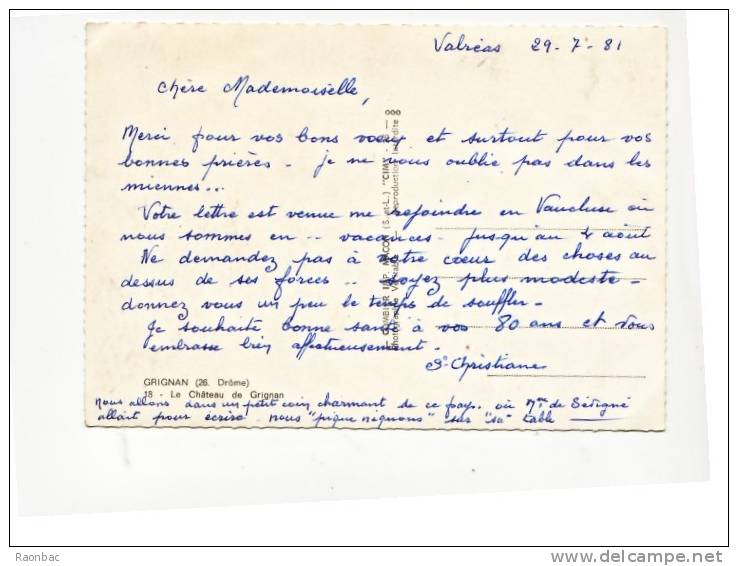 Valréas 29-7-81
Chère Mademoiselle,
Merci pour vos bons voeux et surtout pour vos
bonnes prières - je ne vous oublie pas dans les
miennes...
Votre lettre est venue me rejoindre en Vaucluse où
nous sommes en .. vacances - jusqu'au 4 août
Ne demandez pas à votre coeur des choses au
dessus de ses forces.. soyez plus modeste -
donnez vous un peu le temps de souffler -
Je souhaite bonne santé à vos 80 ans et vous
embrasse bien affectueusement -
Sr Christiane
GRIGNAN (26. Drôme)
18 - Le Château de Grignan
Nous allons dans un petit coin charmant de ce pays où Mme de Sévigné
allait pour écrire - nous "pique niquons" sur "sa" table
COMBIER IMP. MACON (S.-et-L.) "CIM"
Reproduction Interdite
Raonbac
delcampe.net